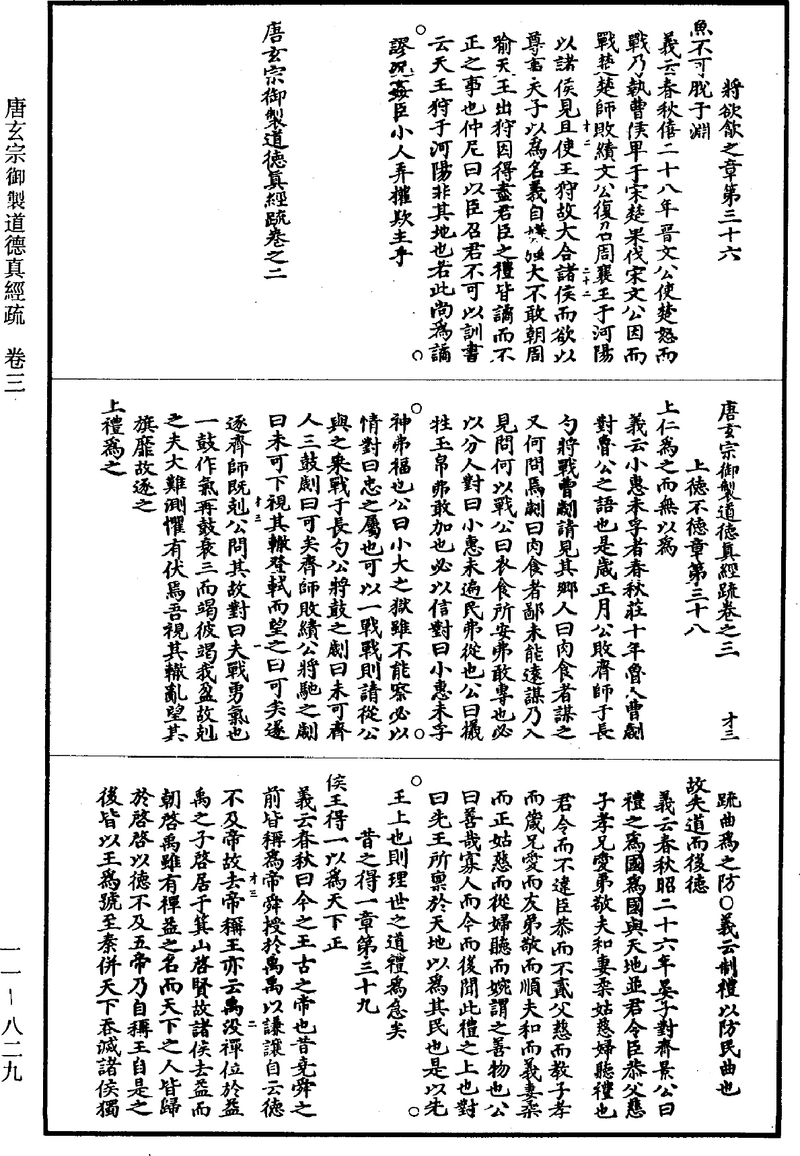 將欲歙之章第三十六
魚不可脫于淵
義云春秋僖二十八年晉文公使楚怒而
戰乃執曹侯畀于宋楚果伐宋文公因而
戰楚楚師敗績文公復召周襄王于河陽
以諸侯見且使王狩故大合諸侯而欲以
尊事天子以為名義自嫌強大不敢朝周
喻天王出狩因得盡君臣之禮皆譎而不
正之事也仲尼曰以臣召君不可以訓書
云天王狩于河陽非其地也若此尚為譎
謬况姦臣小人弄權欺主乎
唐玄宗御製道德真經疏卷之二
唐玄宗御製道德真經疏卷之三 才三
上德不德章第三十八
上仁為之而無以為
義云小惠未孚者春秋莊十年魯人曹劌
對魯公之語也是歲正月公敗齊師于長
勺將戰曹劌請見其鄉人曰肉食者謀之
又何間焉劌曰肉食者鄙未能遠謀乃入
見問何以戰公曰衣食所安弗敢專也必
以分人對曰小惠未遍民弗從也公曰犧
牲玉帛弗敢加也必以信對曰小惠未孚
神弗福也公曰小大之獄雖不能察必以
情對曰忠之屬也可以一戰戰則請從公
與之乘戰于長勺公將鼓之劌曰未可齊
人三鼓劌曰可矣齊師敗績公將馳之劌
曰未可下視其轍登軾而望之曰可矣遂
逐齊師既剋公問其故對曰夫戰勇氣也
一鼓作氣再鼓衰三而竭彼竭我盈故剋
之夫大難測懼有伏焉吾視其轍亂望其
旗靡故逐之
上禮為之
疏曲為之防○義云制禮以防民曲也
故失道而後德
義云春秋昭二十六年晏子對齊景公曰
禮之為國為國與天地並君令臣恭父慈
子孝兄愛弟敬夫和妻柔姑慈婦聽禮也
君令而不違臣恭而不貳父慈而教子孝
而箴兄愛而友弟敬而順夫和而義妻柔
而正姑慈而從婦聽而婉謂之善物也公
曰善哉寡人而令而後聞此禮之上也對
曰先王所稟於天地以為其民也是以先
王上也則理世之道禮為急矣
昔之得一章第三十九
侯王得一以為天下正
義云春秋曰今之王古之帝也昔堯舜之
前皆稱為帝舜授於禹禹以謙讓自云德
不及帝故去帝稱王亦云禹沒禪位於益
禹之子啓居于箕山啓賢故諸侯去益而
朝啓禹雖有禪益之名而天下之人皆歸
於啓啓以德不及五帝乃自稱王自是之
後皆以王為號至秦併天下吞滅諸侯獨
唐玄宗御製道德真經疏 卷三
一一—八二九